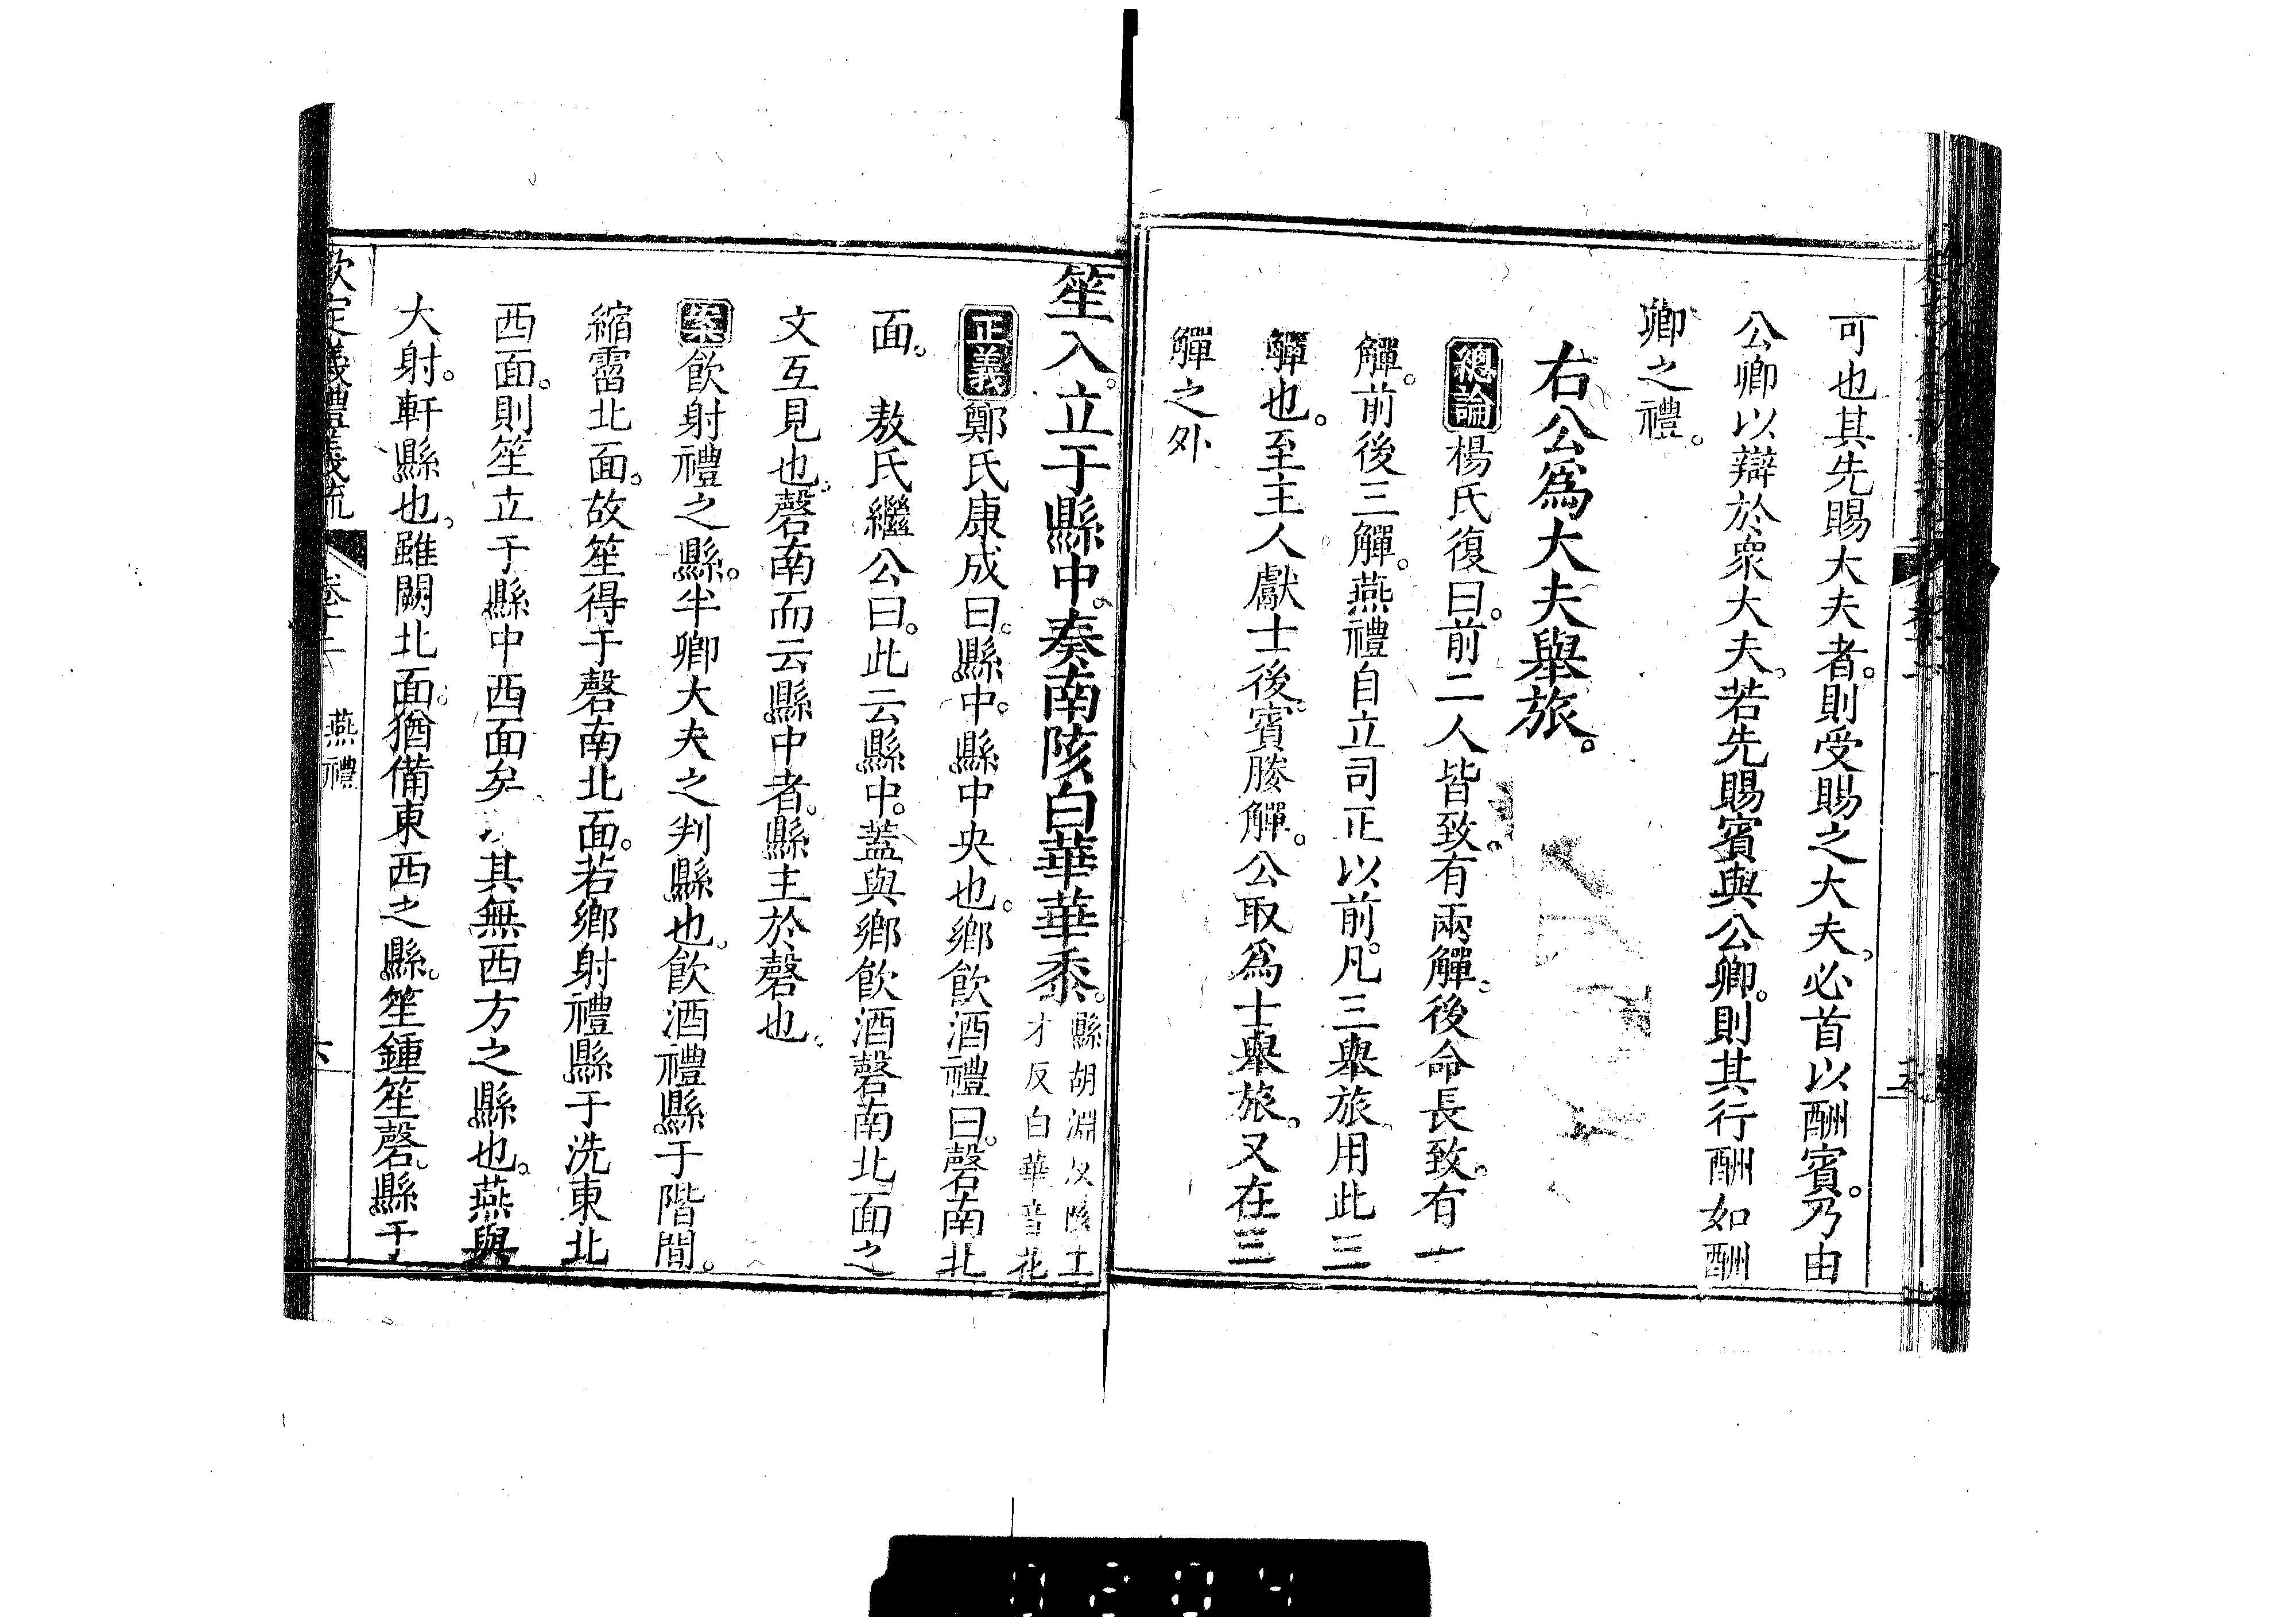 可也其先賜大夫者。則受賜之大夫。必首以酬賓。乃由
公卿以辯於衆大夫。若先賜賓與公卿。則其行酬如酬
卿之禮。
右公爲大夫舉旅。
總論楊氏復曰。前二人皆致。有兩觶。後命長致。有一
觶。前後三觶。燕禮自立司正以前。凡三舉旅。用此三
觶也。至主人獻士後。賓媵觶。公取爲士舉旅。又在三
觶之外
笙入。立于縣中。奏南陔白華華黍。
縣胡淵反陔工
才反白華音花
正義鄭氏康成曰。縣中。縣中央也。鄉飲酒禮曰。磬南北
面。 敖氏繼公曰。此云縣中。蓋與鄉飲酒磬南北面之
文互見也。磬南而云縣中者。縣主於磬也。
案飲射禮之縣。半卿大夫之判縣也。飲酒禮縣于階間。
縮霤北面。故笙得于磬南北面。若鄉射禮縣于洗東北
西面。則笙立于縣中西面矣 其無西方之縣也。燕與
大射。軒縣也。雖闕北面。猶備東西之縣。笙鍾笙磬。縣于
欽定儀禮義疏 卷十二 燕禮 六